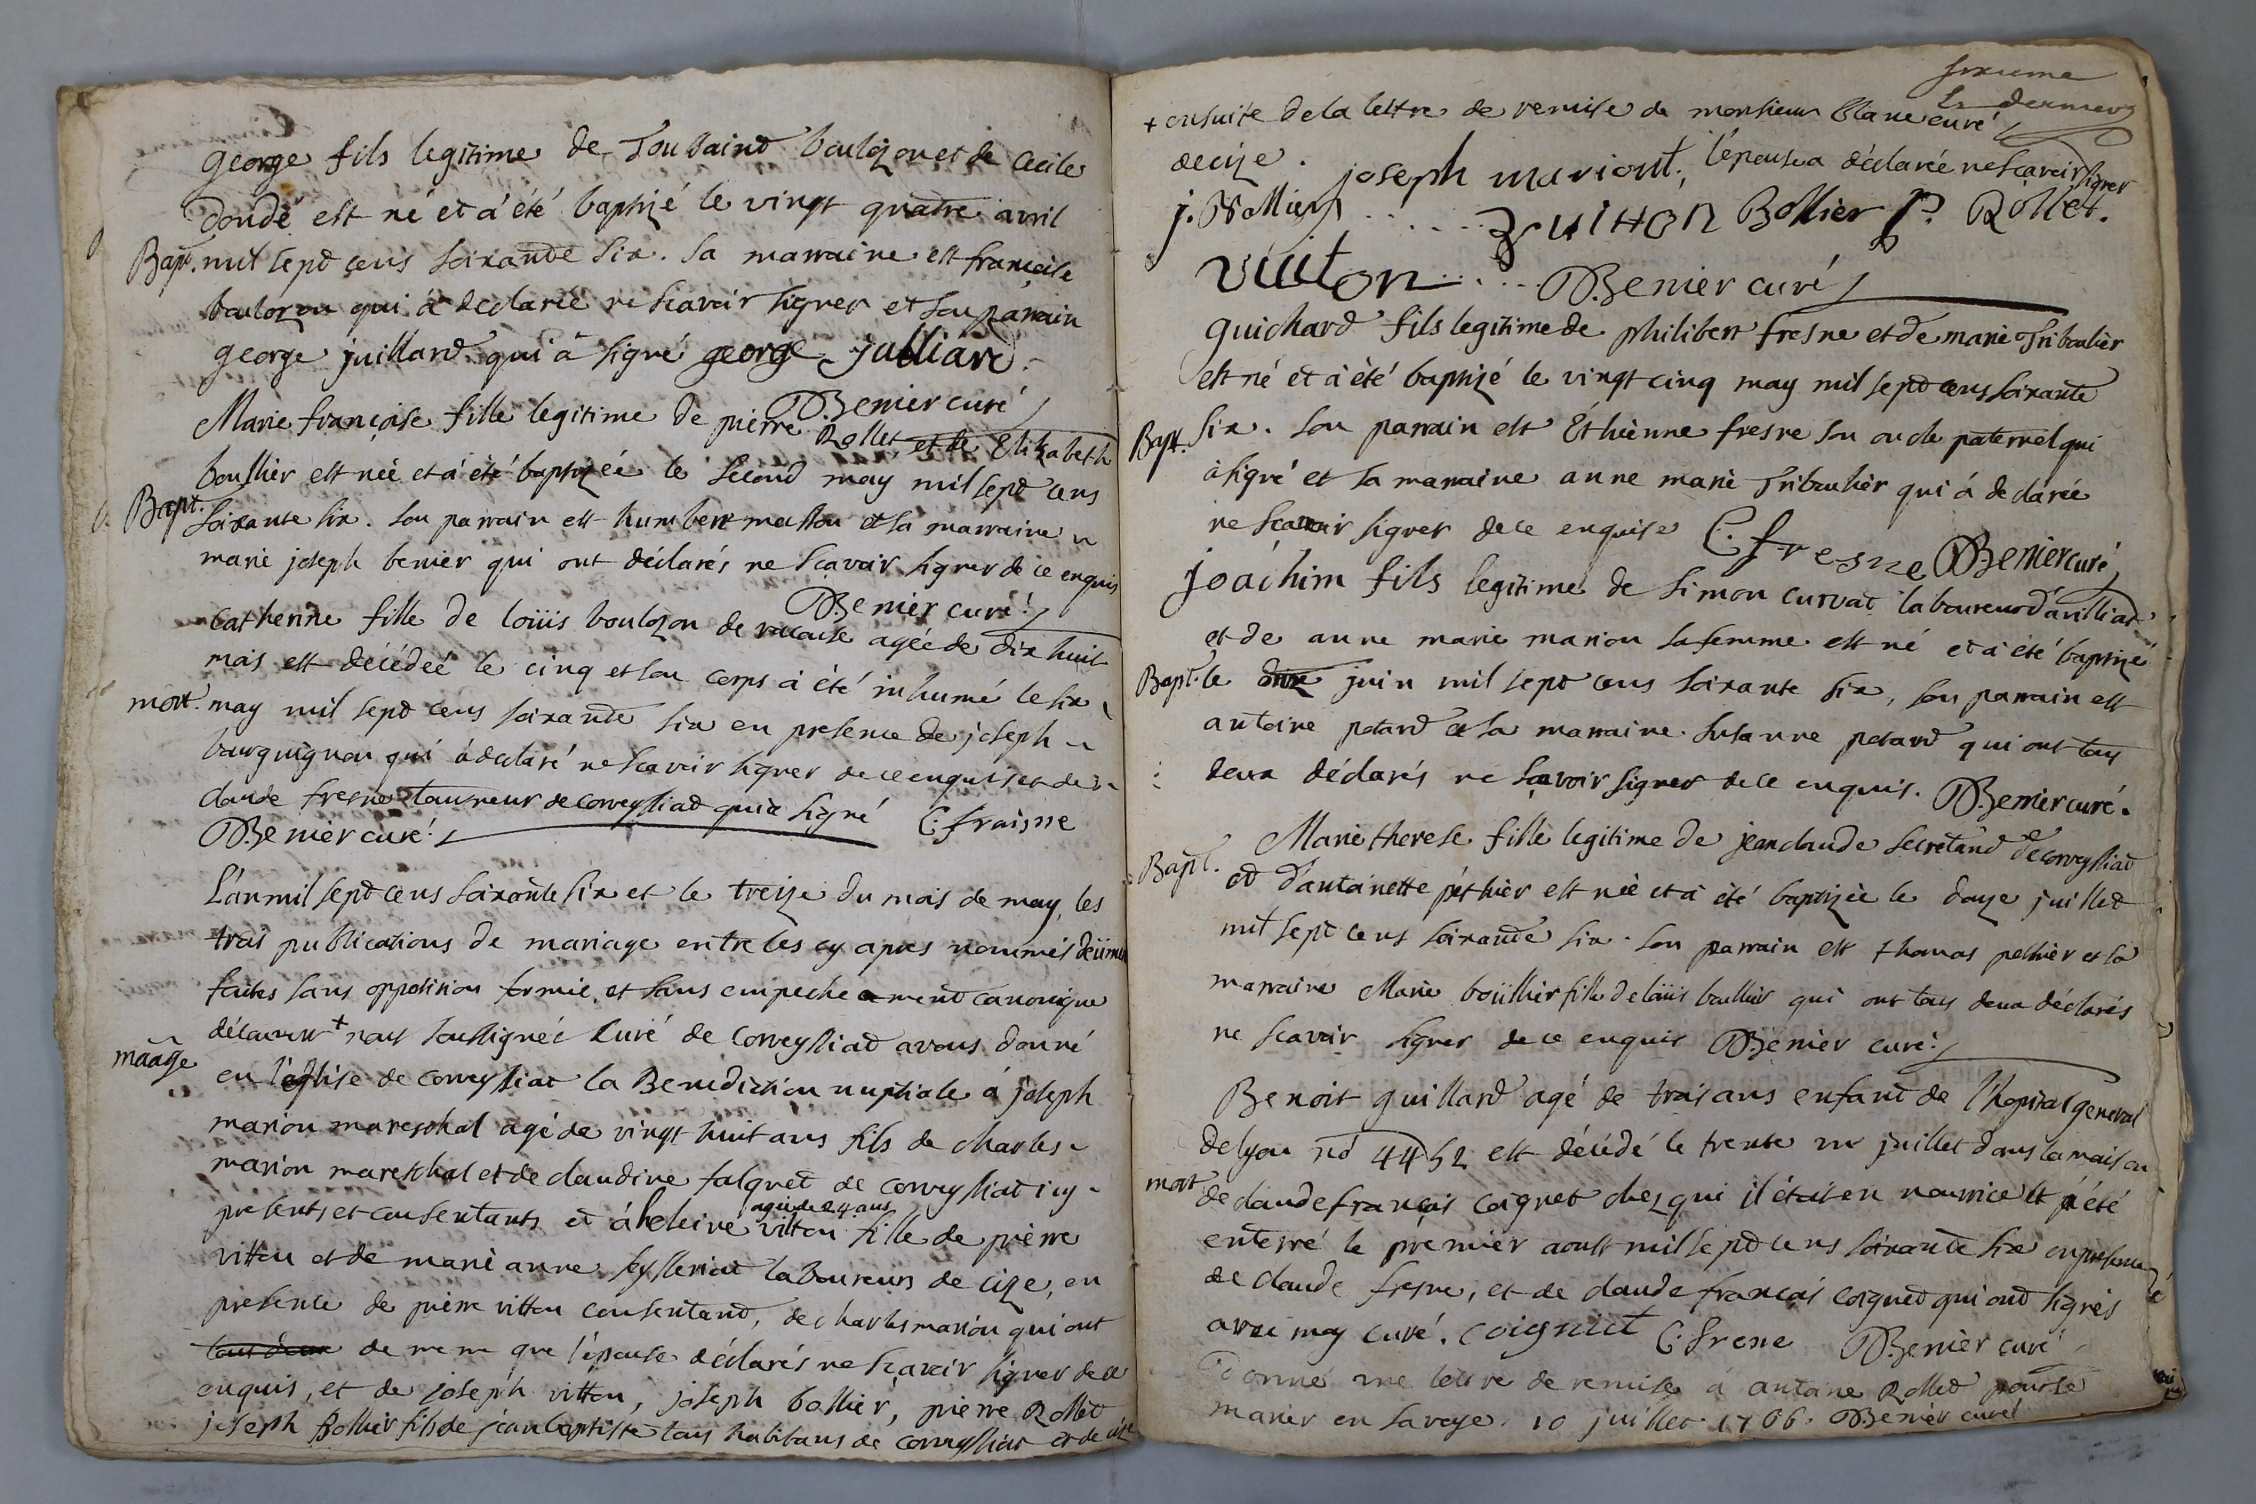 george fils legitime de Toussaind boulozon et de Cecile
dondé est né et á été baptizé le vingt quatre avril
Bapt. mil sept cens soixande six. sa marraine est françoise
boulozon qui á declarée ne scavoir signer et son parrain
george juillard qui á signé george julliard
Benier curé
Marie françoise fille legitime de pierre Rollet et de Elizabeth
boullier est née et á été baptizée le second may mil sept cens
Bapt. soixante six. son parrain est humbert masson et sa marraine
marie joseph benier qui ont déclarés ne scavoir signer de ce enquis
Benier curé
catherine fille de loüis boulozon de racouse agée de dix huit
mois est décédeé le cinq et son corps á été inhumé le six
mort. may mil sept cens soixande six en presence de joseph
bourguignon qui á declaré ne scavoir signer de ce enquis et de
claude fresne tanneur de corveyssiad qui a signé C. fraisne
Benier curé
L'an mil sept cens soixante six et le treize du mois de may, les
trois publications de mariage entre les cy apres nommés düem
faites sans opposition formée, et sans empechement canonique
découvert + nous soussignéé Curé de Corveyssiad avons donné
maage en l'eglise de corveyssiat la Benediction nuptiale á joseph
marion mareschal agé de vingt huit ans fils de charles
marion mareschal et de claudine falquet de corveyssiad icy
presents et consentants et á heleine agée de 24 ans vitton fille de pierre
vitton et de marie anne seysseriat laboureurs de cize, en
presence de pierre vitton consentand, de charles marion qui ont
tous deux de meme que l'epouse déclarés ne scavoir signer de ce
enquis, et de joseph vitton, joseph bollier, pierre Rollet
joseph bollier fils de jean baptiste tous habitans de corveyssiat et de cize
sixieme
Le dernier
+ ensuite de la lettre de remise de monsieur blanc curé
de cize. joseph mariont, l'epouse a déclarée ne scavoir signer
j. Bollier .... vuitton Bollier P. Rollet.
vuiton .... Benier curé
guichard fils legitime de philibert fresne et de marie Triboulier
est né et á été baptizé le vingt cinq may mil sept cens soixante
Bapt. six. son parrain est Éthienne fresne son oncle paternel qui
á signé et sa marraine anne marie Triboulier qui á declarée
ne scavoir signer de ce enquise C. fresne Benier curé
joáchim fils legitime de simon curvat laboureur d'arilliat
et de anne marie marion sa femme est né et á été baptizé
Bapt. le onze juin mil sept cens soixante six, son parrain est
antoine potard et sa marraine Susanne potard qui ont tous
deux déclarés ne scavoir signer de ce enquis. Benier curé.
Marie therese fille legitime de jean claude secretand de corveyssiad
Bapt. et d'antoinette pethier est née et á été baptizée le douze juillet
mil sept cens soixande six. son parrain est thomas pethier et sa
marraine Marie boüllier fille de loüis boullier qui ont tous deux déclarés
ne scavoir signer de ce enquis Benier curé
Benoit guillard agé de trois ans enfant de l'hopital general
de lyon no 4452 est décédé le trente un juillet dans la maison
mort de claude françois coignet chez qui il étoit en nourrice et á été
enterré le premier aoust mil sept cens soixante six en presence
de claude fresne, et de claude françois coigned qui ont signés
avec moy curé. coignet C. frene Benier curé
Donné une lettre de remise á antoine Rollet pour se
marier en savoye. 10 juillet 1766. Benier curé